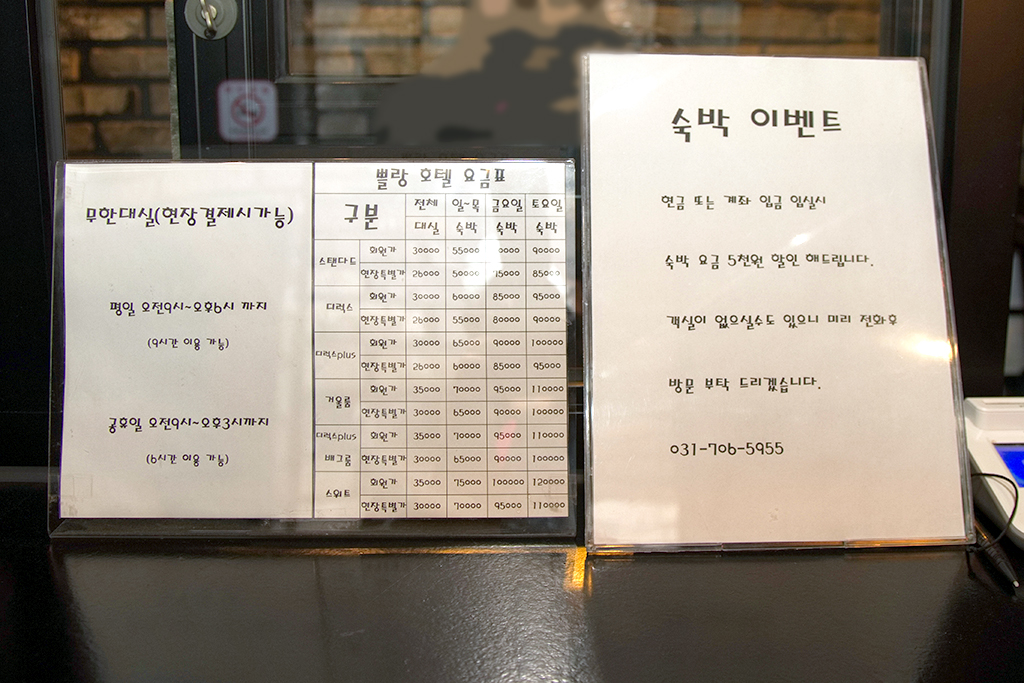 무한대실(현장결제시가능)
평일 오전9시~오후6시 까지
(9시간 이용 가능)
공휴일 오전9시~오후3시까지
(6시간 이용 가능)
쁠랑 호텔 요금표
구분 전체 일~목 금요일 토요일
대실 숙박 숙박 숙박
스탠다드 회원가 30000 55000 90000
현장특별가 26000 50000 75000 85000
디럭스 회원가 30000 60000 85000 95000
현장특별가 26000 55000 80000 90000
디럭스plus 회원가 30000 65000 90000 100000
현장특별가 26000 60000 85000 95000
거울룸 회원가 35000 70000 95000 110000
현장특별가 30000 65000 90000 100000
디럭스plus 회원가 35000 70000 95000 110000
배그룸 현장특별가 30000 65000 90000 100000
스위트 회원가 35000 75000 100000 120000
현장특별가 30000 70000 95000 110000
숙박 이벤트
현금 또는 계좌 입금 입실시
숙박 요금 5천원 할인 해드립니다.
객실이 없으실수도 있으니 미리 전화후
방문 부탁 드리겠습니다.
031-706-5955